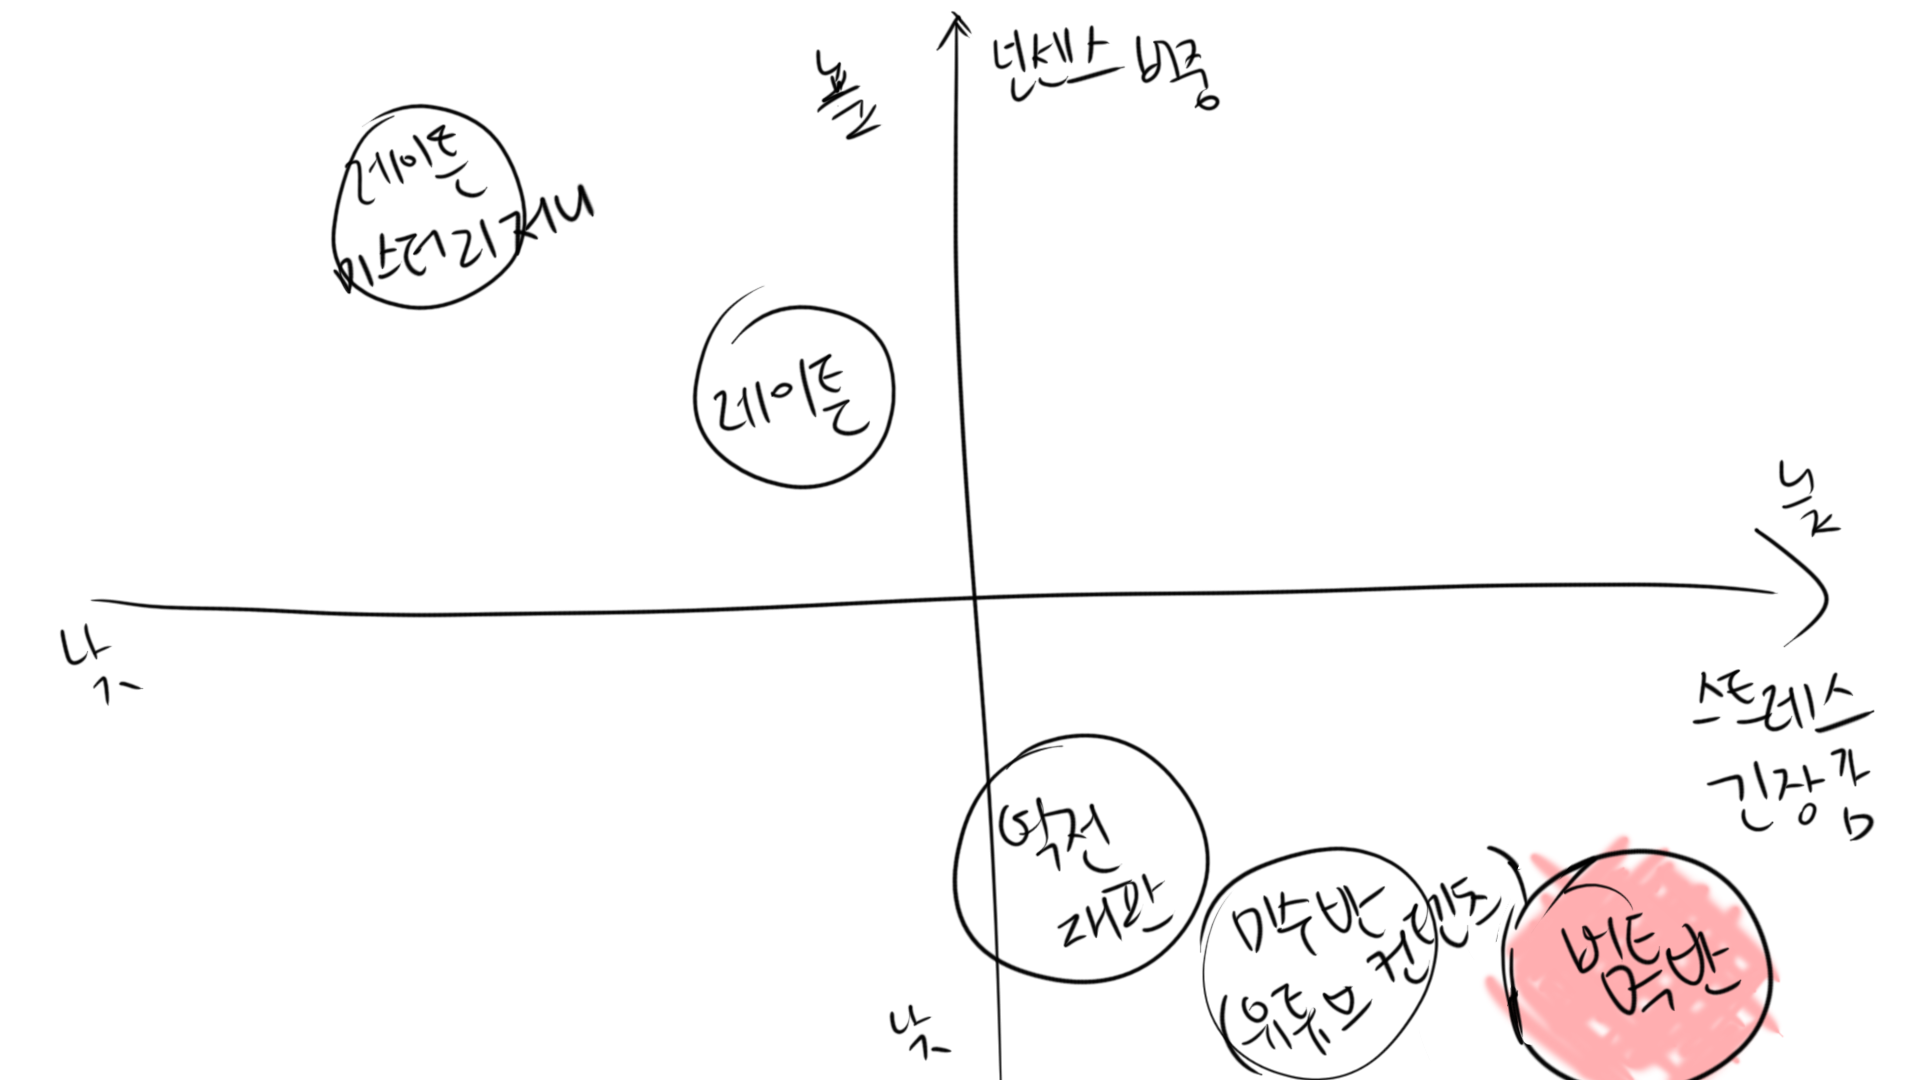 넌센스 비중
높
레이튼
미스터리저니
레이튼
높
낮
스트레스
긴장감
역전
재판
미수반
(유튜브 컨텐츠)
낮